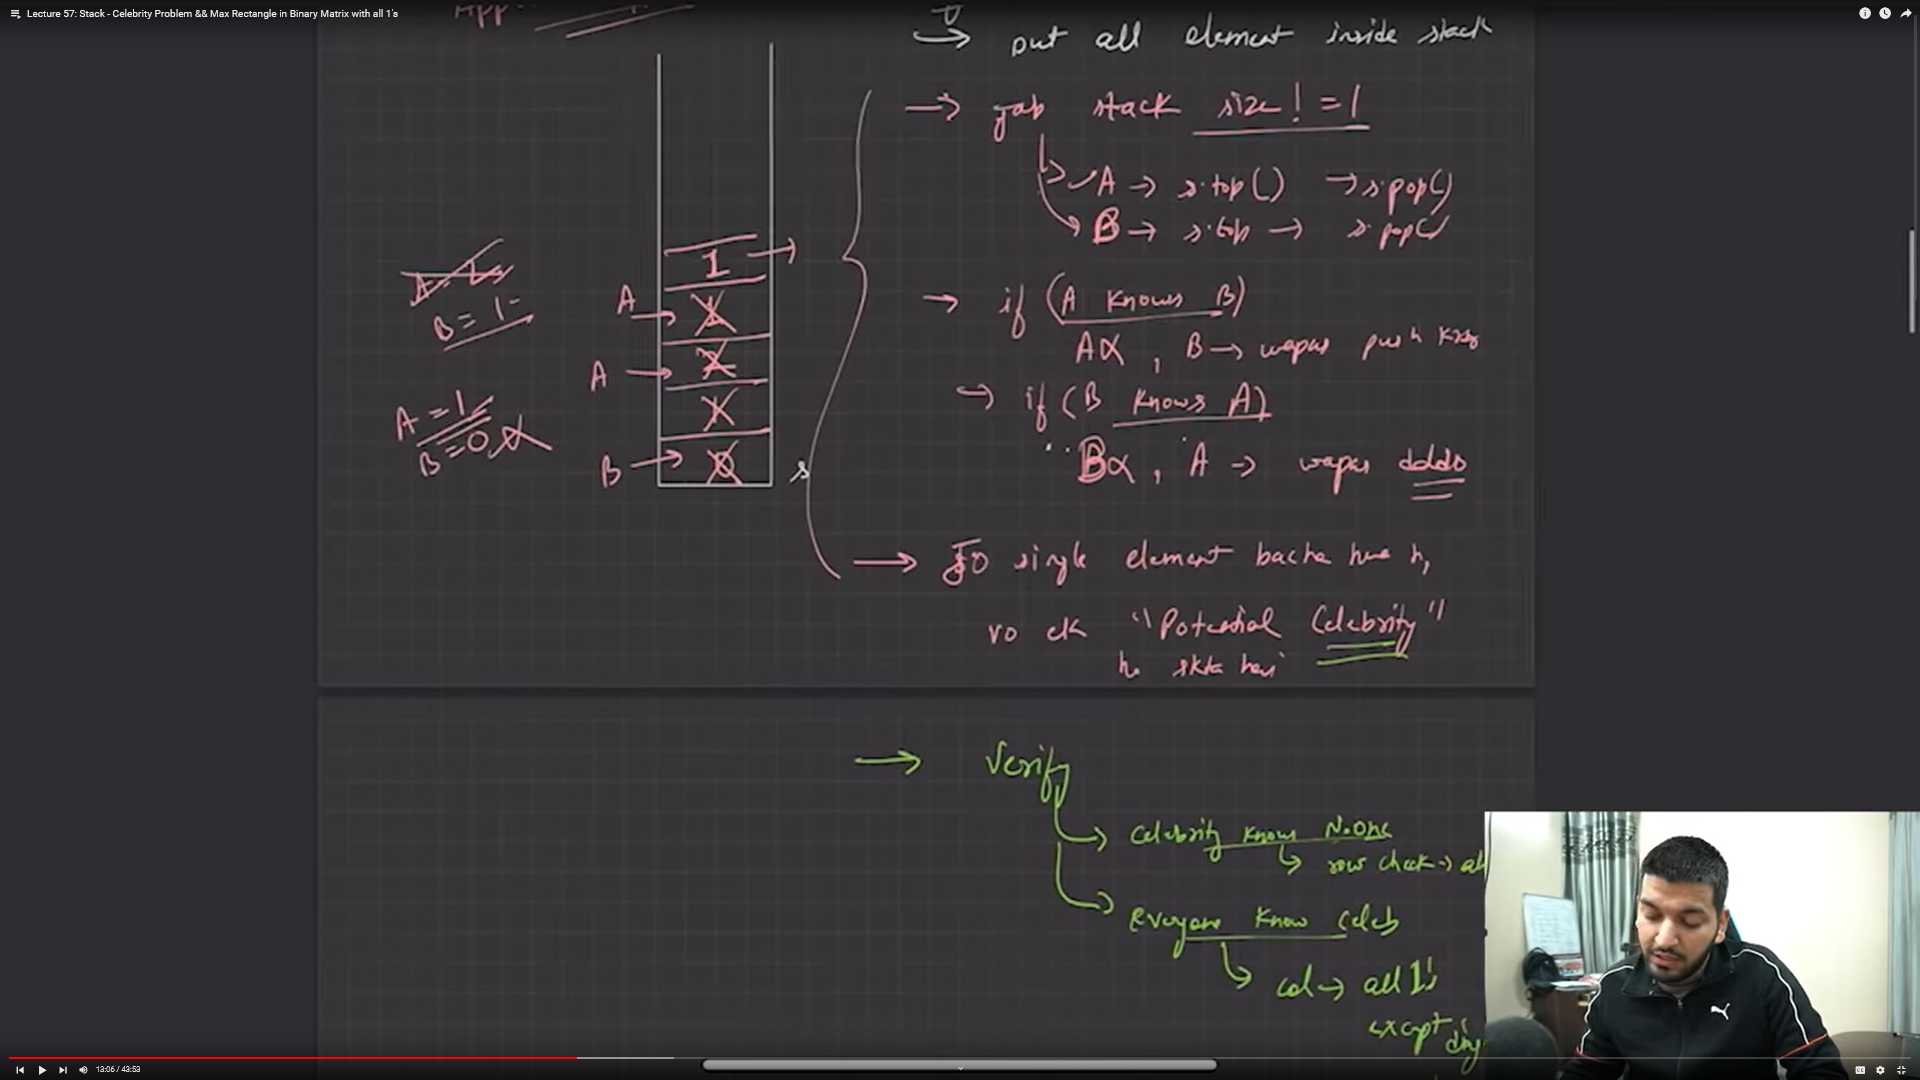 Lecture 57: Stack - Celebrity Problem && Max Rectangle in Binary Matrix with all 1's
App
→ put all element inside stack
→ jab stack size != 1
→ A → s.top() → s.pop()
→ B → s.top → s.pop()
→ if (A knows B)
A☓, B → wapas push krdo
→ if (B knows A)
B☓, A → wapas daldo
→ Jo single element bacha hua h,
vo ek "Potential Celebrity"
ho skta hai
1
A →
A →
B → 0
s
B = 1
A = 1
B = 0
→ Verify
→ Celebrity knows No one
→ row check → all
→ Everyone know Celeb
→ col → all 1's
except diag
13:06 / 43:53